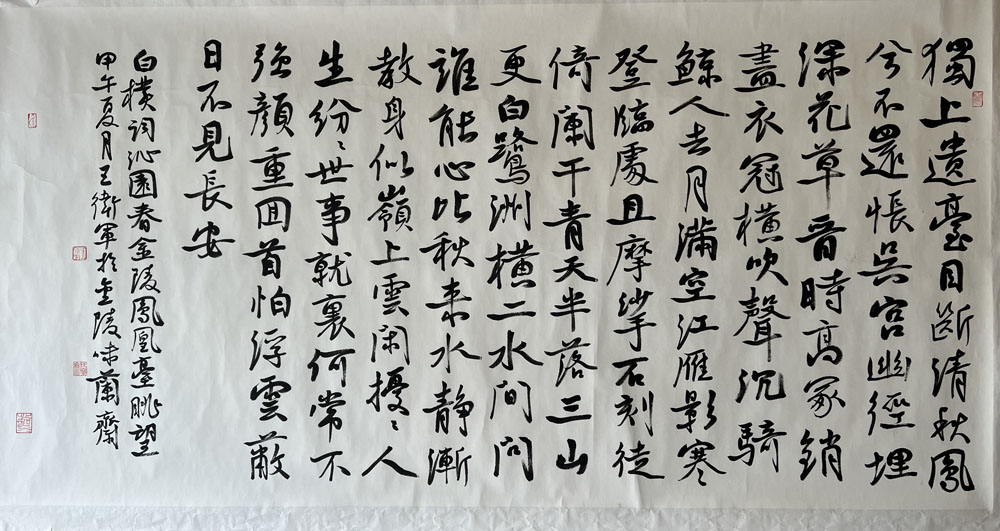 獨上遺臺目斷清秋鳳
兮不還悵吳宮幽徑埋
深花草晉時高冢銷
盡衣冠橫吹聲沉騎
鲸人去月滿空江雁影寒
登臨處且摩挲石刻徒
倚闌干青天半落三山
更白鷺洲橫二水間問
誰能心比秋來水静漸
教身似嶺上雲閑擾〻人
生紛〻世事就裏何常不
强顏重回首怕浮雲蔽
日不見長安
白樸詞沁園春金陵鳳凰臺眺望
甲午夏月王衛軍於金陵味蘭齋